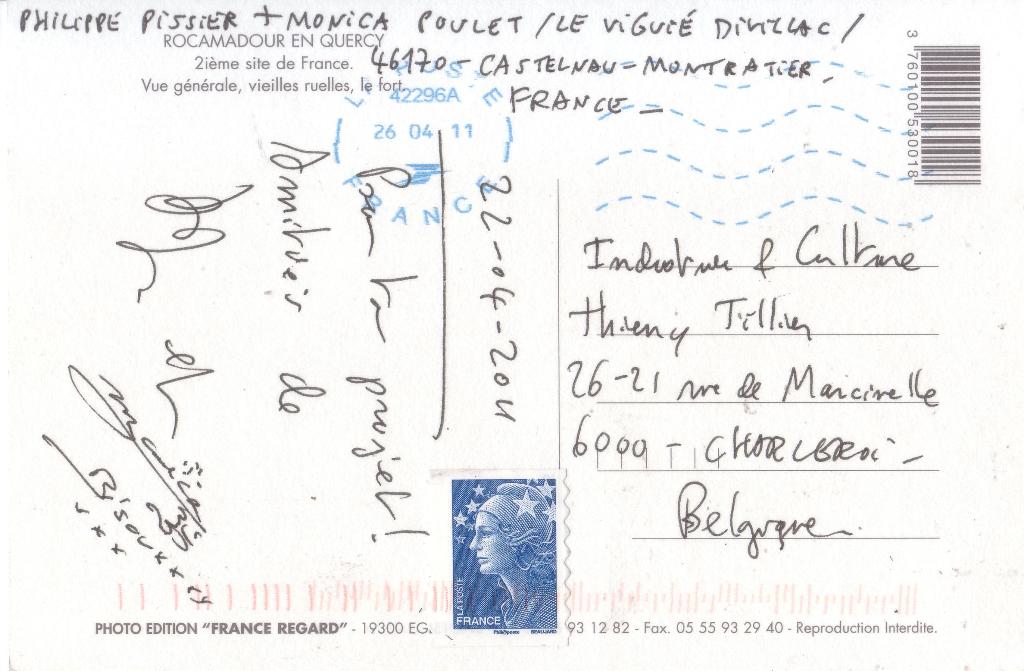 PHILIPPE PISSIER + MONICA POULET / LE VIGUIÉ DIVILLAC /
46170 - CASTELNAU-MONTRATIER.
FRANCE -
ROCAMADOUR EN QUERCY
2ième site de France.
Vue générale, vieilles ruelles, le fort.
LA POSTE
42296A
26 04 11
FRANCE
3 760100 530018
22-04-2011
Pour ton projet!
Amitiés de
et
Bisoux
Industrie & Culture
Thierry Tillier
26-21 rue de Marcinelle
6000 - CHARLEROI -
Belgique
LA POSTE
FRANCE
Phil@poste BEAUJARD
PHOTO EDITION "FRANCE REGARD" - 19300 EG. 93 12 82 - Fax. 05 55 93 29 40 - Reproduction Interdite.